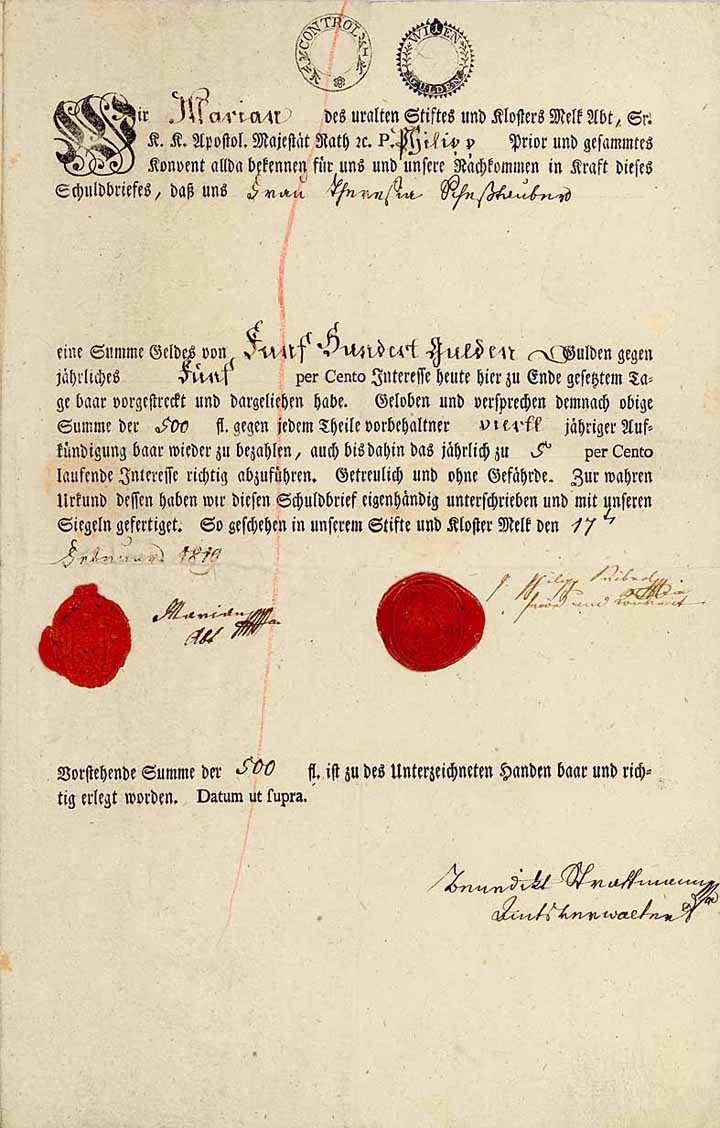 CONTROL
WIEN
GULDEN
Wir Marian des uralten Stiftes und Klosters Melk Abt, Sr.
K. K. Apostol. Majestät Rath ꝛc. P. Philipp Prior und gesammtes
Konvent allda bekennen für uns und unsere Nachkommen in Kraft dieses
Schuldbriefes, daß uns Frau Theresia
eine Summe Geldes von Fünf Hundert Gulden Gulden gegen
jährliches Fünf per Cento Interesse heute hier zu Ende gesetztem Ta-
ge baar vorgestreckt und dargeliehen habe. Geloben und versprechen demnach obige
Summe der 500 fl. gegen jedem Theile vorbehaltner viertl jähriger Auf-
kündigung baar wieder zu bezahlen, auch bis dahin das jährlich zu 5 per Cento
laufende Interesse richtig abzuführen. Getreulich und ohne Gefährde. Zur wahren
Urkund dessen haben wir diesen Schuldbrief eigenhändig unterschrieben und mit unseren
Siegeln gefertiget. So geschehen in unserem Stifte und Kloster Melk den 17t
Februar 1819
Marian
Abt
P. Philipp
Prior und Konvent
Vorstehende Summe der 500 fl. ist zu des Unterzeichneten Handen baar und rich-
tig erlegt worden. Datum ut supra.
Benedikt Strattmann
Amtsverwalter